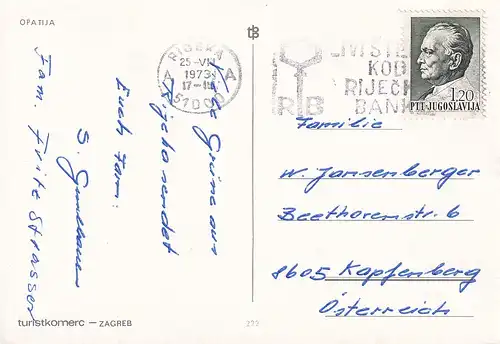 OPATIJA
RIJEKA
25-VII
1973
17-18
A A
51000
ŠTEDITE
KOD
RIJEČKE
BANKE
RB
1.20
PTT JUGOSLAVIJA
Viele Grüße aus
Rijeka sendet
Euch Fam:
S.
Fam. Fritz Strasser
Familie
W. Jansenberger
Beethovenstr. 6
8605 Kapfenberg
Österreich
turistkomerc – ZAGREB
222